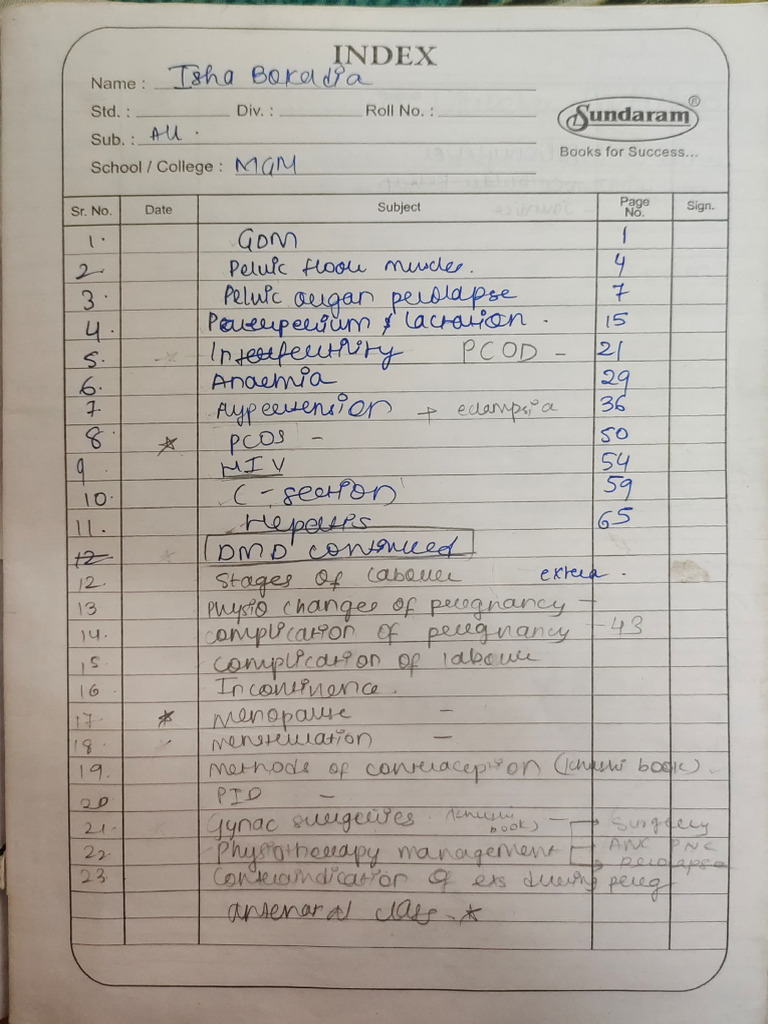 INDEX
Name : Isha Bokadia
Std. : Div. : Roll No. :
Sub. : All .
School / College : MGM
Sundaram®
Books for Success...
Sr. No. Date Subject Page No. Sign.
1. GDM 1
2. Pelvic floor muscles. 4
3. Pelvic organ perolapse 7
4. Peuerperium & lactation . 15
5. Infertility PCOD - 21
6. Anaemia 29
7. Hypertension + eclampsia 36
8 * PCOS - 50
9 HIV 54
10. C-section 59
11. Hepatis 65
12 DMD continued
12. Stages of labour extra .
13 Physio changes of pregnancy -
14. complication of pregnancy - 43
15 complication of labour
16 Incontinence.
17. * menopause -
18. menstruation -
19. methods of contraception (Khushi book) .
20 PID -
21. Gynac surgeries. (Khushi book) - → Surgery
22 Physiotherapy management → ANC PNC
→ perolapse
23 Contraindication of exs during preg
antenatal class - *